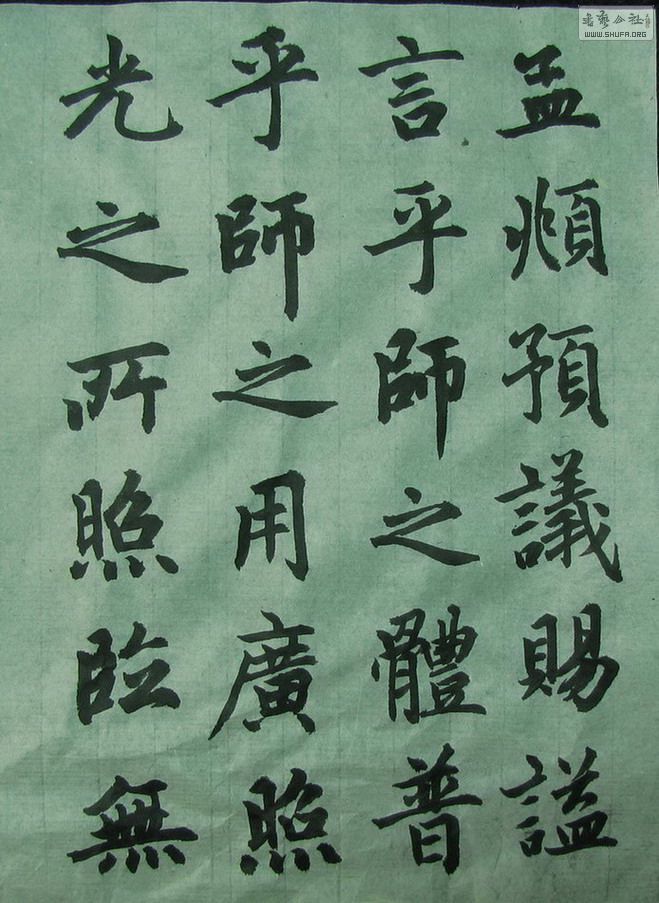 孟頫預議賜謚
言乎師之體普
乎師之用廣照
光之所照臨無
書藝公社
WWW.SHUFA.ORG